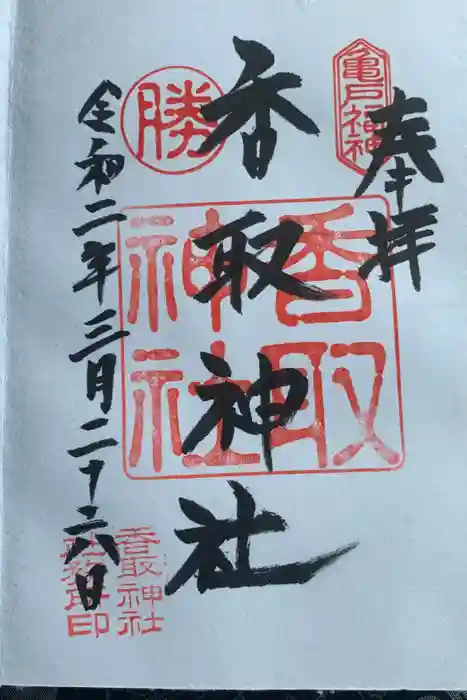 奉拝
亀戸福神
香取神社
香取神社
勝
令和二年三月二十六日
香取神社
社務所印